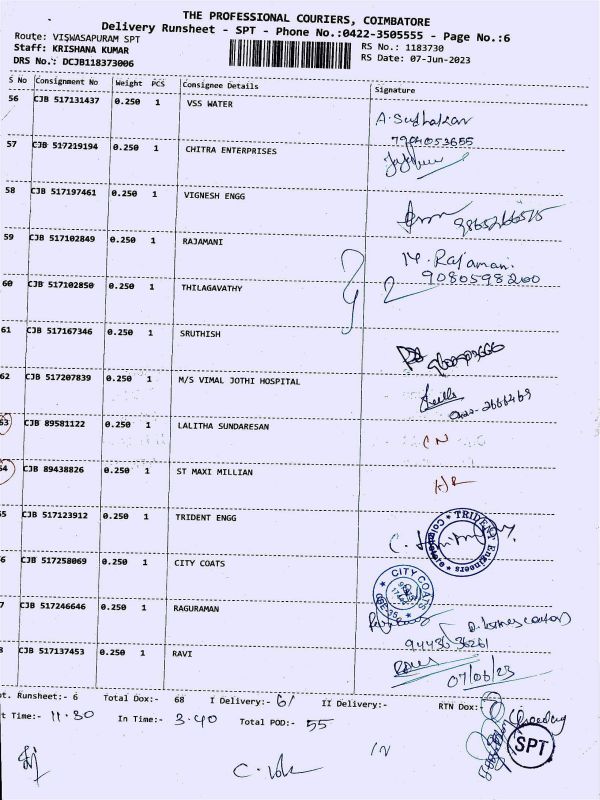 THE PROFESSIONAL COURIERS, COIMBATORE
Delivery Runsheet - SPT - Phone No.:0422-3505555 - Page No.:6
Route: VISWASAPURAM SPT
RS No.: 1183730
Staff: KRISHANA KUMAR
RS Date: 07-Jun-2023
DRS No.: DCJB118373006
S No Consignment No Weight PCS Consignee Details Signature
56 CJB 517131437 0.250 1 VSS WATER
A. Sudhakar
7904053655
57 CJB 517219194 0.250 1 CHITRA ENTERPRISES
58 CJB 517197461 0.250 1 VIGNESH ENGG
59 CJB 517102849 0.250 1 RAJAMANI
M. Rajamani
9080598200
60 CJB 517102850 0.250 1 THILAGAVATHY
61 CJB 517167346 0.250 1 SRUTHISH
62 CJB 517207839 0.250 1 M/S VIMAL JOTHI HOSPITAL
0422-2666469
63 CJB 89581122 0.250 1 LALITHA SUNDARESAN
CN
64 CJB 89438826 0.250 1 ST MAXI MILLIAN
A/R
5 CJB 517123912 0.250 1 TRIDENT ENGG
TRIDENT Engineers Coimbatore
6 CJB 517258069 0.250 1 CITY COATS
CITY COATS
CBE-35
7 CJB 517246646 0.250 1 RAGURAMAN
9443636261
8 CJB 517137453 0.250 1 RAVI
07/06/23
ot. Runsheet:- 6 Total Dox:- 68 I Delivery:- 61 II Delivery:- RTN Dox:-
t Time:- 11.30 In Time:- 3.40 Total POD:- 55
SPT